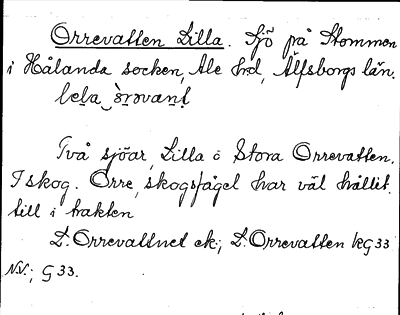 Orrevatten Lilla. Sjö på Stommen
i Hålanda socken, Ale hrd, Älfsborgs län.
Två sjöar, Lilla o Stora Orrevatten.
I skog. Orre, skogsfågel har väl hållit
till i trakten
L. Orrevattnet ek; L. Orrevatten kG33
NV.; G 33.